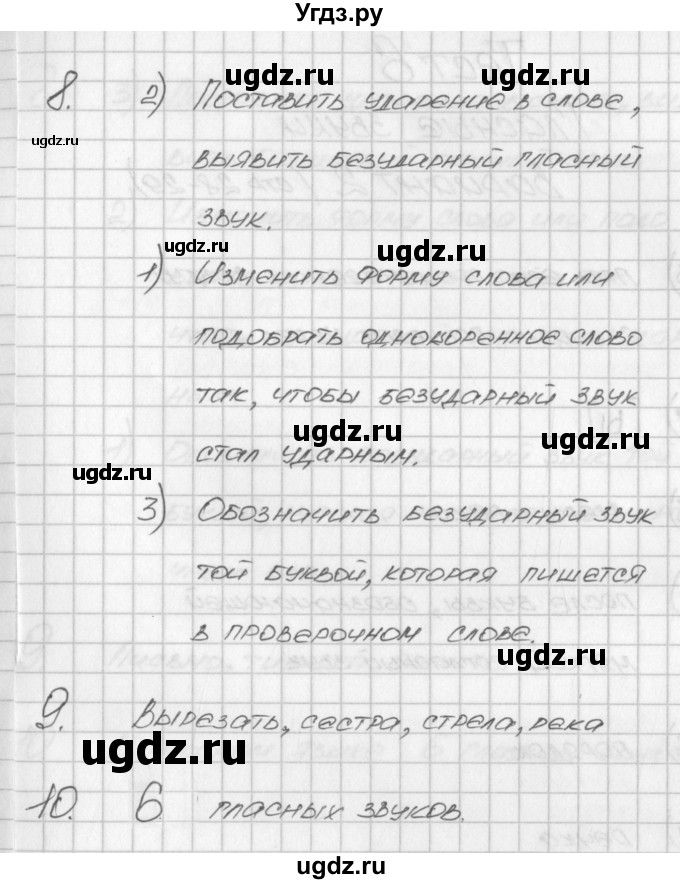 Угдз.ру
ugdz.ru ugdz.ru
8. 2) Поставить ударение в слове,
ugdz.ru
выявить безударный гласный
звук.
ugdz.ru ugdz.ru
1) Изменить форму слова или
подобрать однокоренное слово
так, чтобы безударный звук
ugdz.ru ugdz.ru
стал ударным.
ugdz.ru
3) Обозначить безударный звук
той буквой, которая пишется
в проверочном слове.
ugdz.ru
9. Вырезать, сестра, стрела, река
ugdz.ru
10. 6 гласных звуков.
ugdz.ru